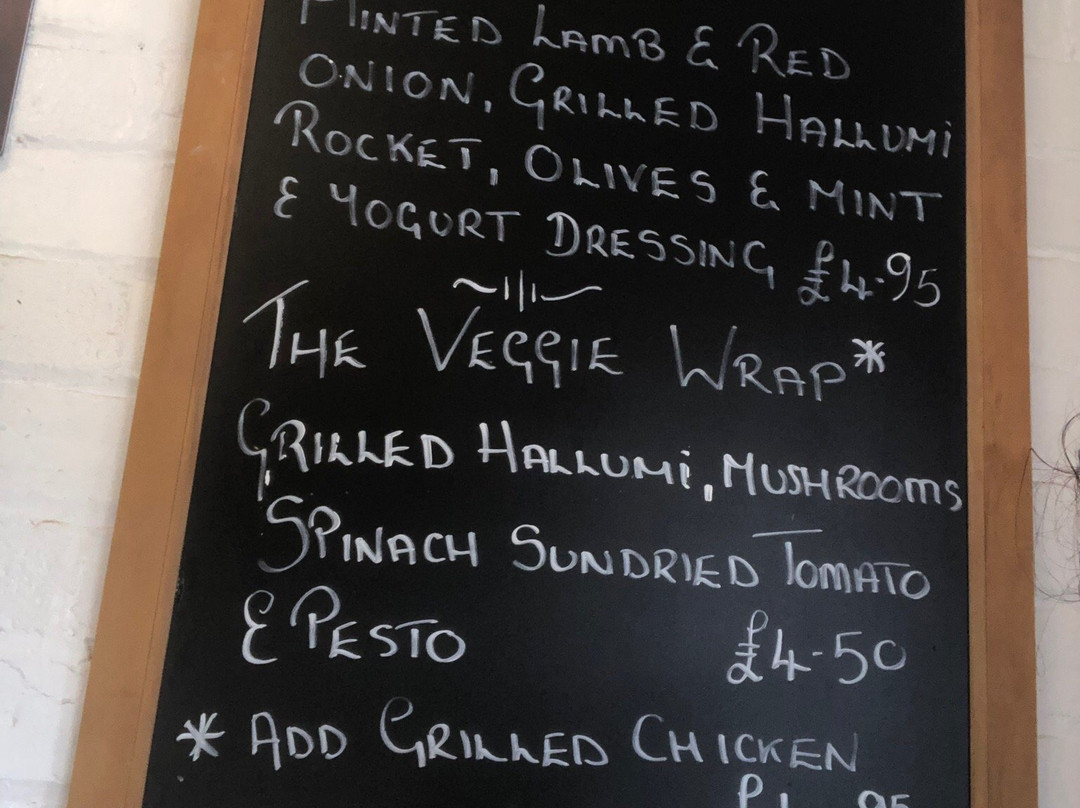 MINTED LAMB & RED
ONION, GRILLED HALLUMI
ROCKET, OLIVES & MINT
& YOGURT DRESSING £4.95
THE VEGGIE WRAP*
GRILLED HALLUMI, MUSHROOMS
SPINACH SUNDRIED TOMATO
& PESTO £4-50
* ADD GRILLED CHICKEN